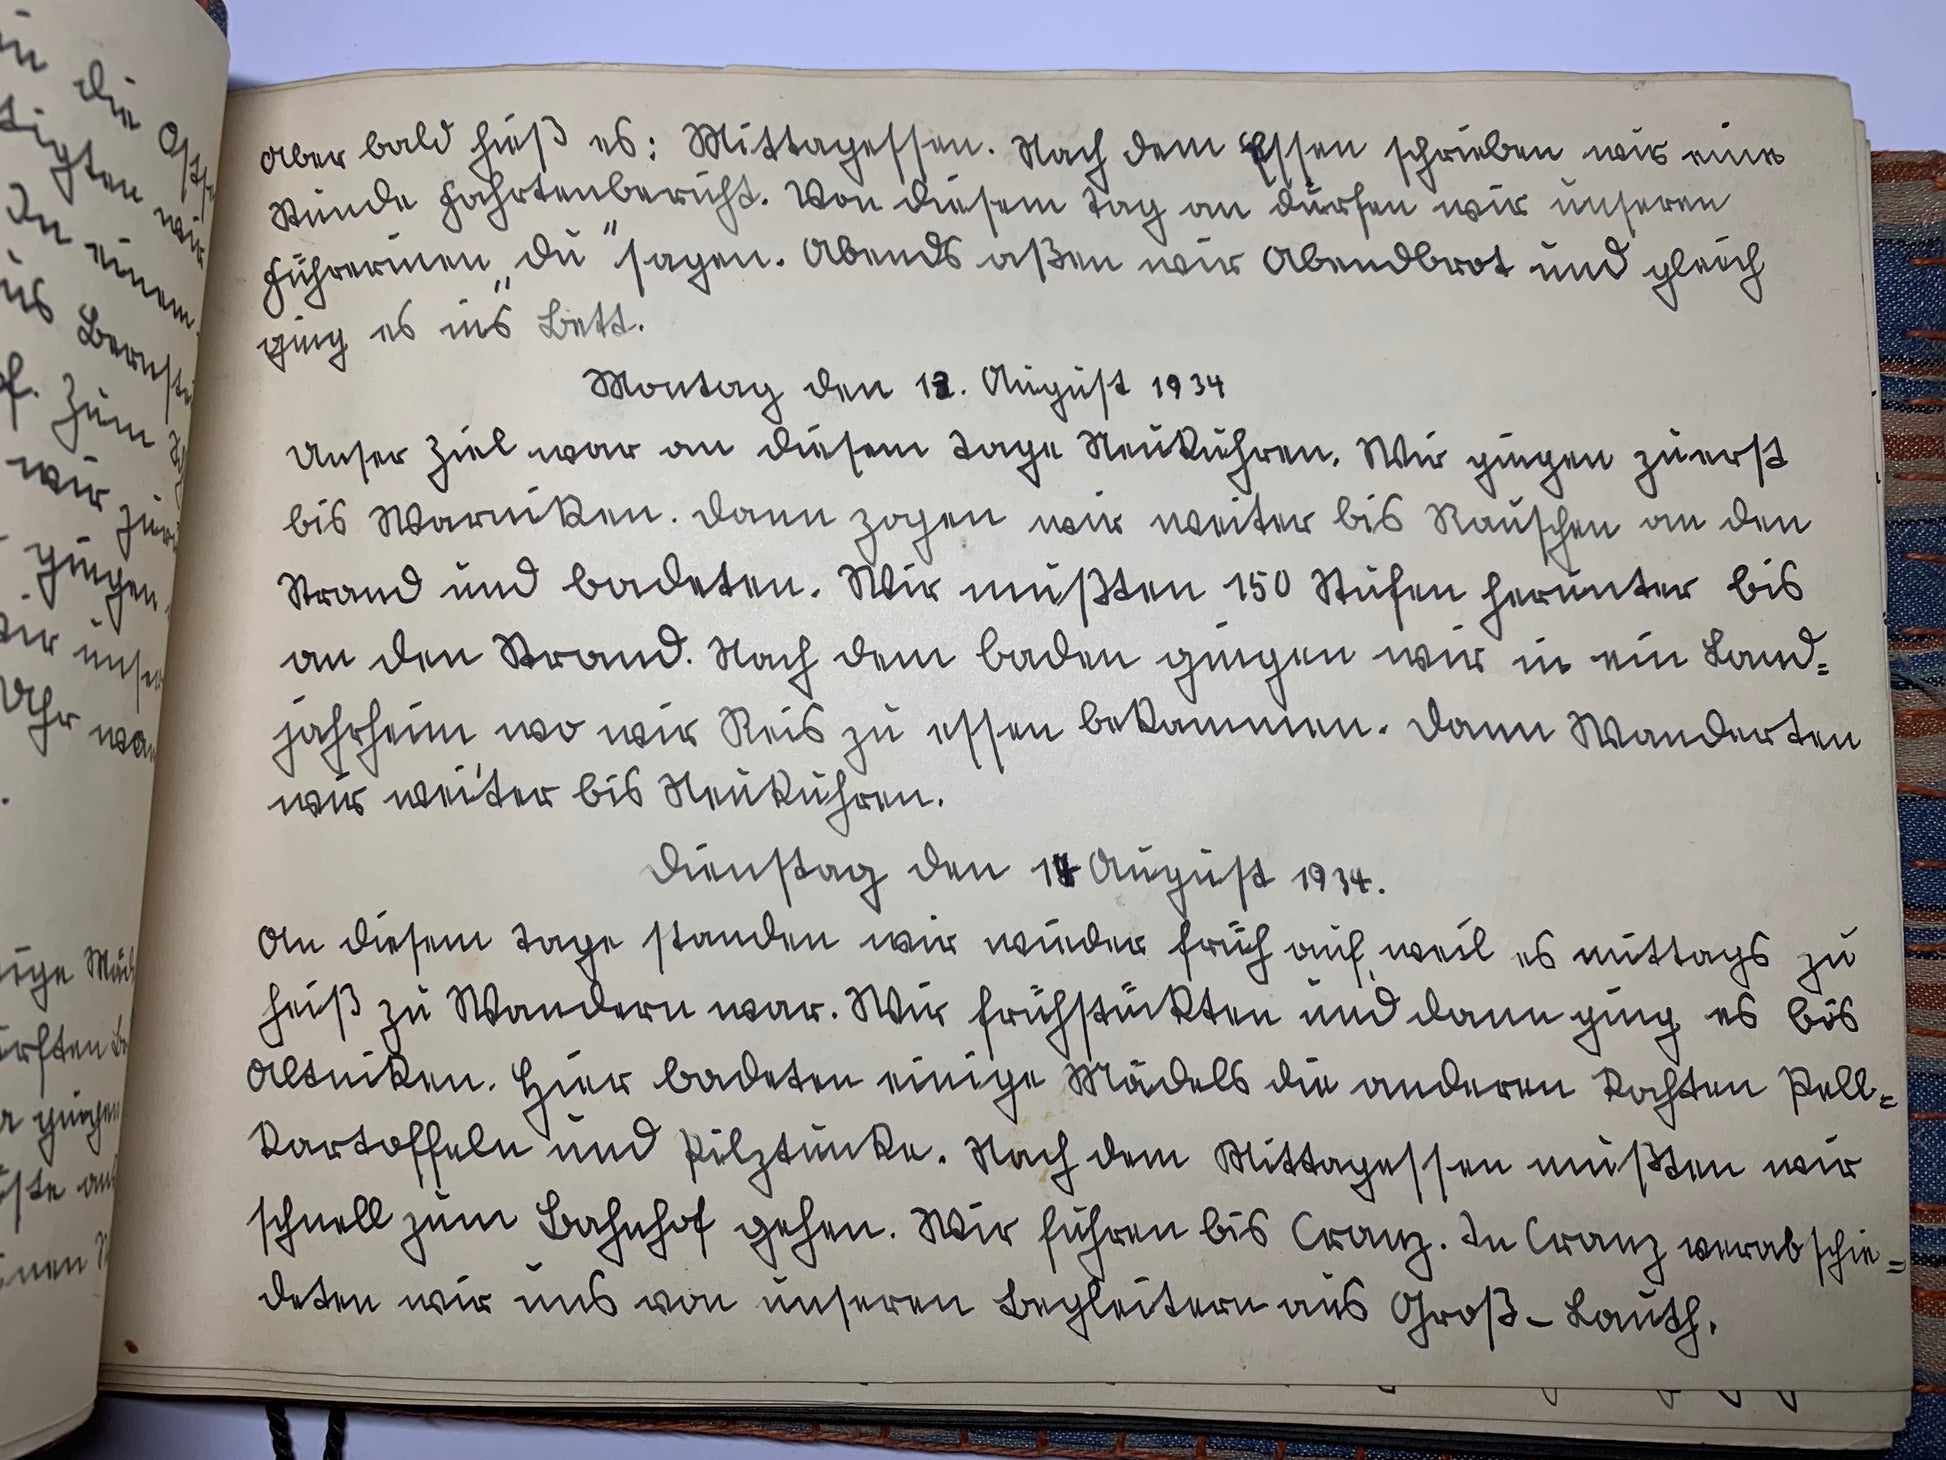 Aber bald hieß es: Mittagessen. Nach dem Essen schrieben wir eine
Stunde Fahrtenbericht. Von diesem Tag an dürfen wir unseren
Führerinen „du" sagen. Abends aßen wir Abendbrot und gleich
ging es ins Bett.
Montag den August 1934
Unser Ziel war an diesem Tage Neukuhren. Wir gingen zuerst
bis Warniken. Dann zogen wir weiter bis Rauschen an den
Strand und badeten. Wir mußten 150 Stufen herunter bis
an den Strand. Nach dem baden gingen wir in ein Land=
jahrheim, wo wir Reis zu essen bekammen. Dann Wanderten
wir weiter bis Neukuhren.
Dienstag den August 1934.
An diesem Tage standen wir wieder früh auf, weil es mittags zu
heiß zu Wandern war. Wir frühstückten und dann ging es bis
Altniken. Hier badeten einige Mädels die anderen kochten Pell=
kartoffeln und Pilztunke. Nach dem Mittagessen mußten wir
schnell zum Bahnhof gehen. Wir fuhren bis Cranz. In Cranz verabschie=
deten wir uns von unseren Begleitern aus Groß-Lauth.